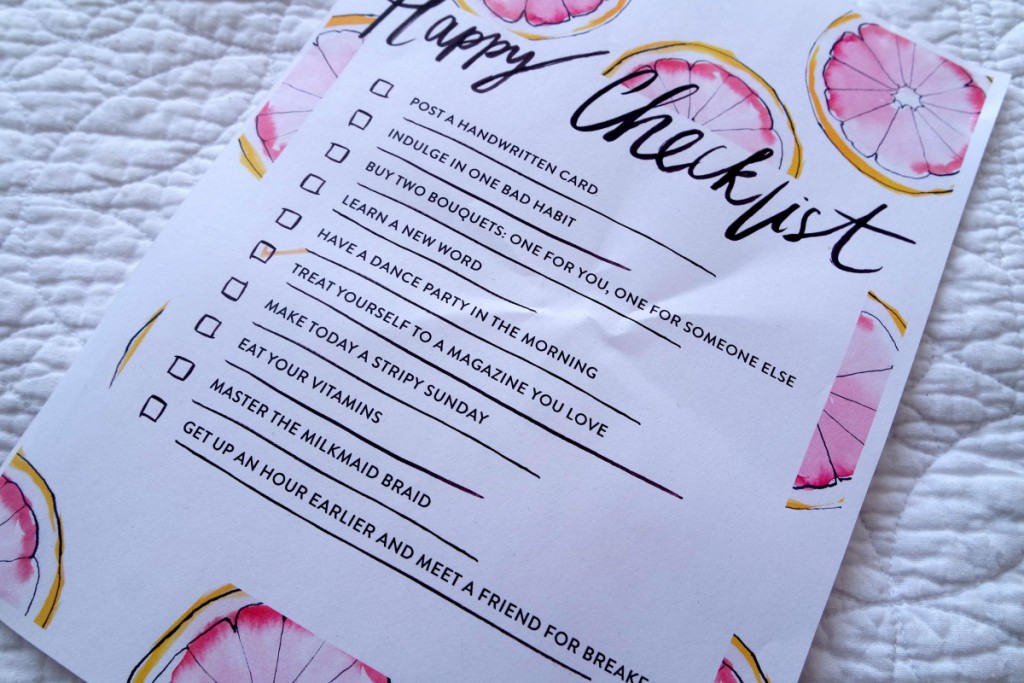 Happy
Checklist
POST A HANDWRITTEN CARD
INDULGE IN ONE BAD HABIT
BUY TWO BOUQUETS: ONE FOR YOU, ONE FOR SOMEONE ELSE
LEARN A NEW WORD
HAVE A DANCE PARTY IN THE MORNING
TREAT YOURSELF TO A MAGAZINE YOU LOVE
MAKE TODAY A STRIPY SUNDAY
EAT YOUR VITAMINS
MASTER THE MILKMAID BRAID
GET UP AN HOUR EARLIER AND MEET A FRIEND FOR BREAKF